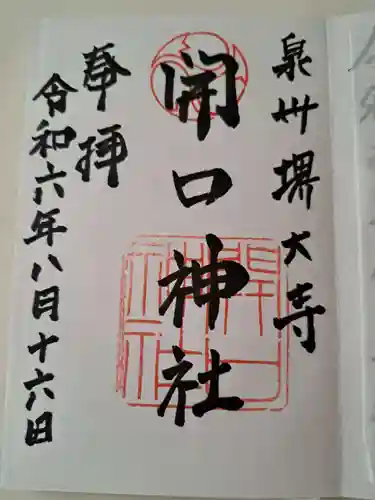 泉州堺大寺
開口神社
奉拝
令和六年八月十六日
開口神社